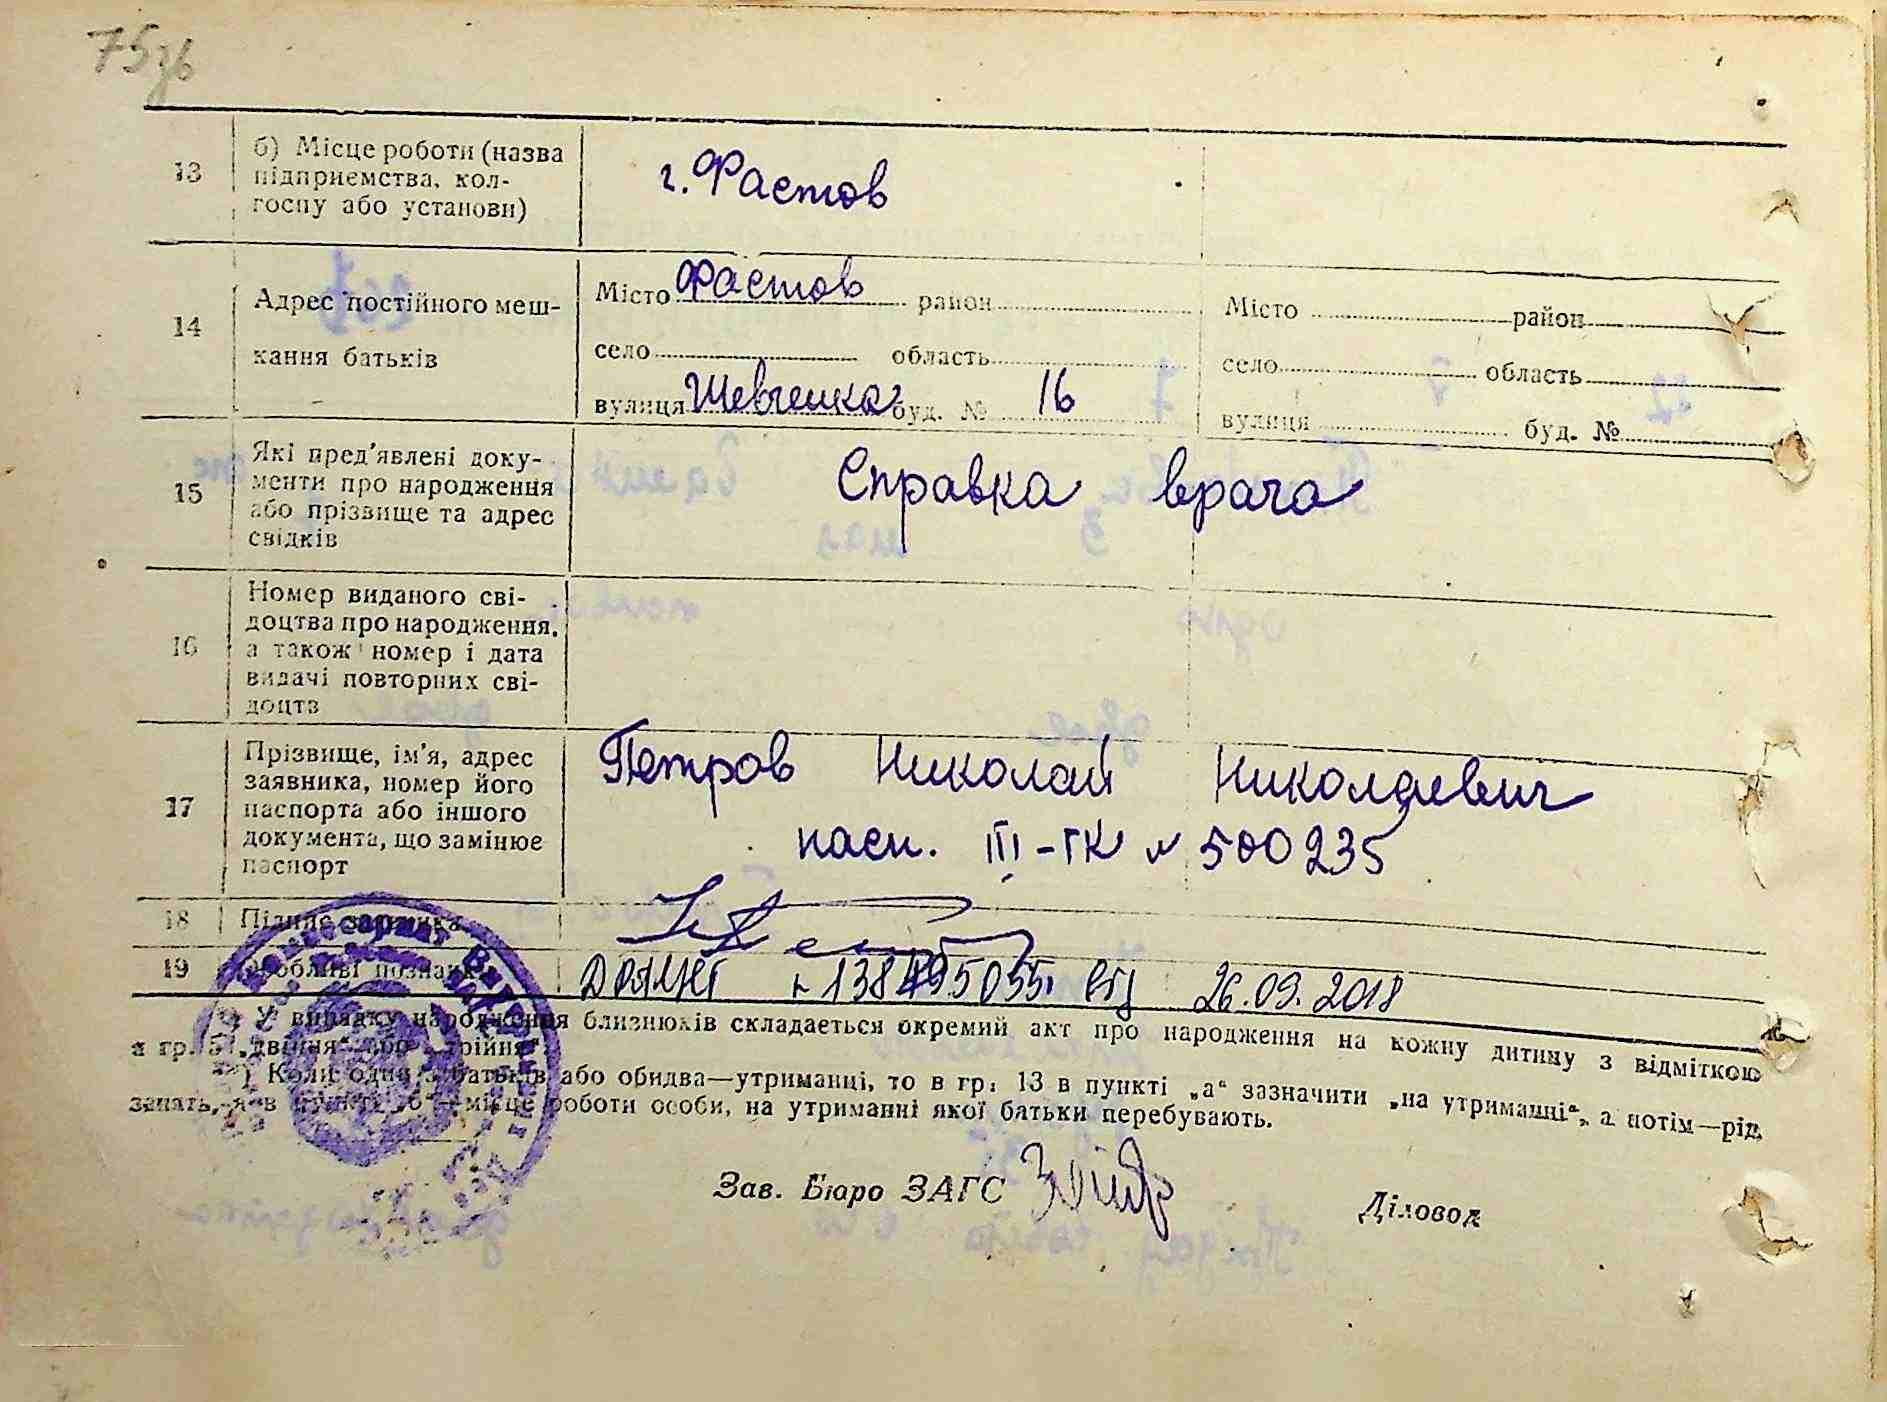 75зв
13
б) Місце роботи (назва
підприємства, кол-
госпу або установи)
г. Фастов
14
Адрес постійного меш-
кання батьків
Місто Фастов район
село область
вулиця Шевченка буд. № 16
Місто район
село область
вулиця буд. №
15
Які пред'явлені доку-
менти про народження
або прізвище та адрес
свідків
Справка врача
16
Номер виданого сві-
доцтва про народження,
а також номер і дата
видачі повторних сві-
доцтв
17
Прізвище, ім'я, адрес
заявника, номер його
паспорта або іншого
документа, що замінює
паспорт
Петров Николай Николаевич
пасп. III-ГК № 500235
18
Підпис заявника
19
Особливі познаки
26.09.2018
У випадку народження близнюків складається окремий акт про народження на кожну дитину з відміткою
в гр. 5 „двійня“ або „трійня“.
) Коли один з батьків або обидва—утриманці, то в гр. 13 в пункті „а“ зазначити „на утриманні“, а потім—рід
занять, а в пункті „б“—місце роботи особи, на утриманні якої батьки перебувають.
Зав. Бюро ЗАГС
Діловод